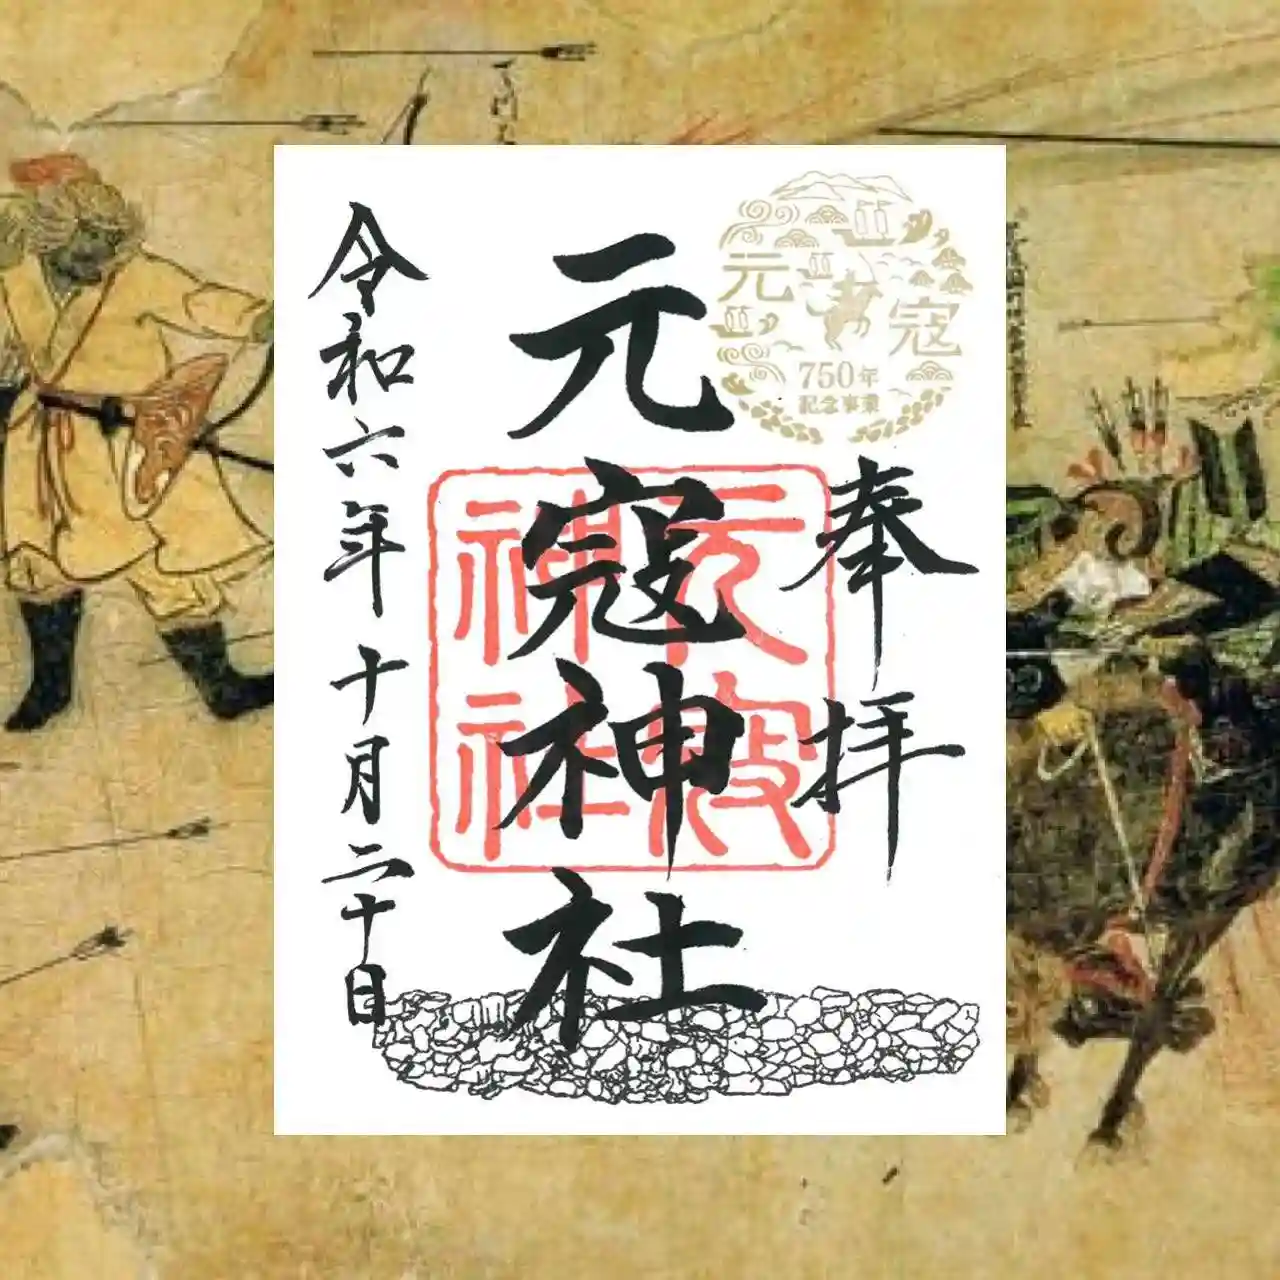 奉拝
元寇
750年
記念事業
元寇神社
元寇神社
令和六年十月二十日